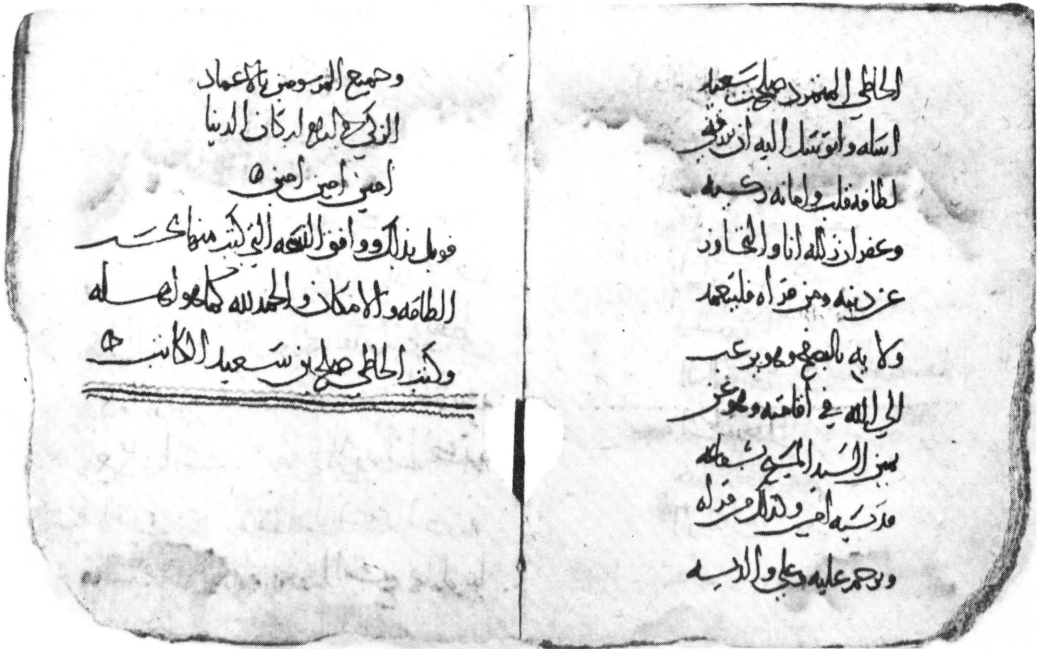 الخاطي المتمرد صلح بن سعيد
اسله واتوسل اليه ان يرزقني
لطافه قلب وامانه
وغفران زلله انا والتجاوز
عن دينه ومن قراه فليتعمد
ولا يه بالصفح وهو يرغب
الي الله في اقامته وهو عن
يمين السيد المسيح بشفاعه
قديسيه امين ولذلك من قراه
وترحم عليه وعلي والديه
وجميع المرسومين بالاعماد
الزكي في اربع اركان الدنيا
امين امين امين
قوبل بذلك ووافق النسخه التي كتب منها بحسب
الطاقه والامكان والحمد لله كما هو اهله
وكتب الخاطي صلح بن سعيد الكاتب